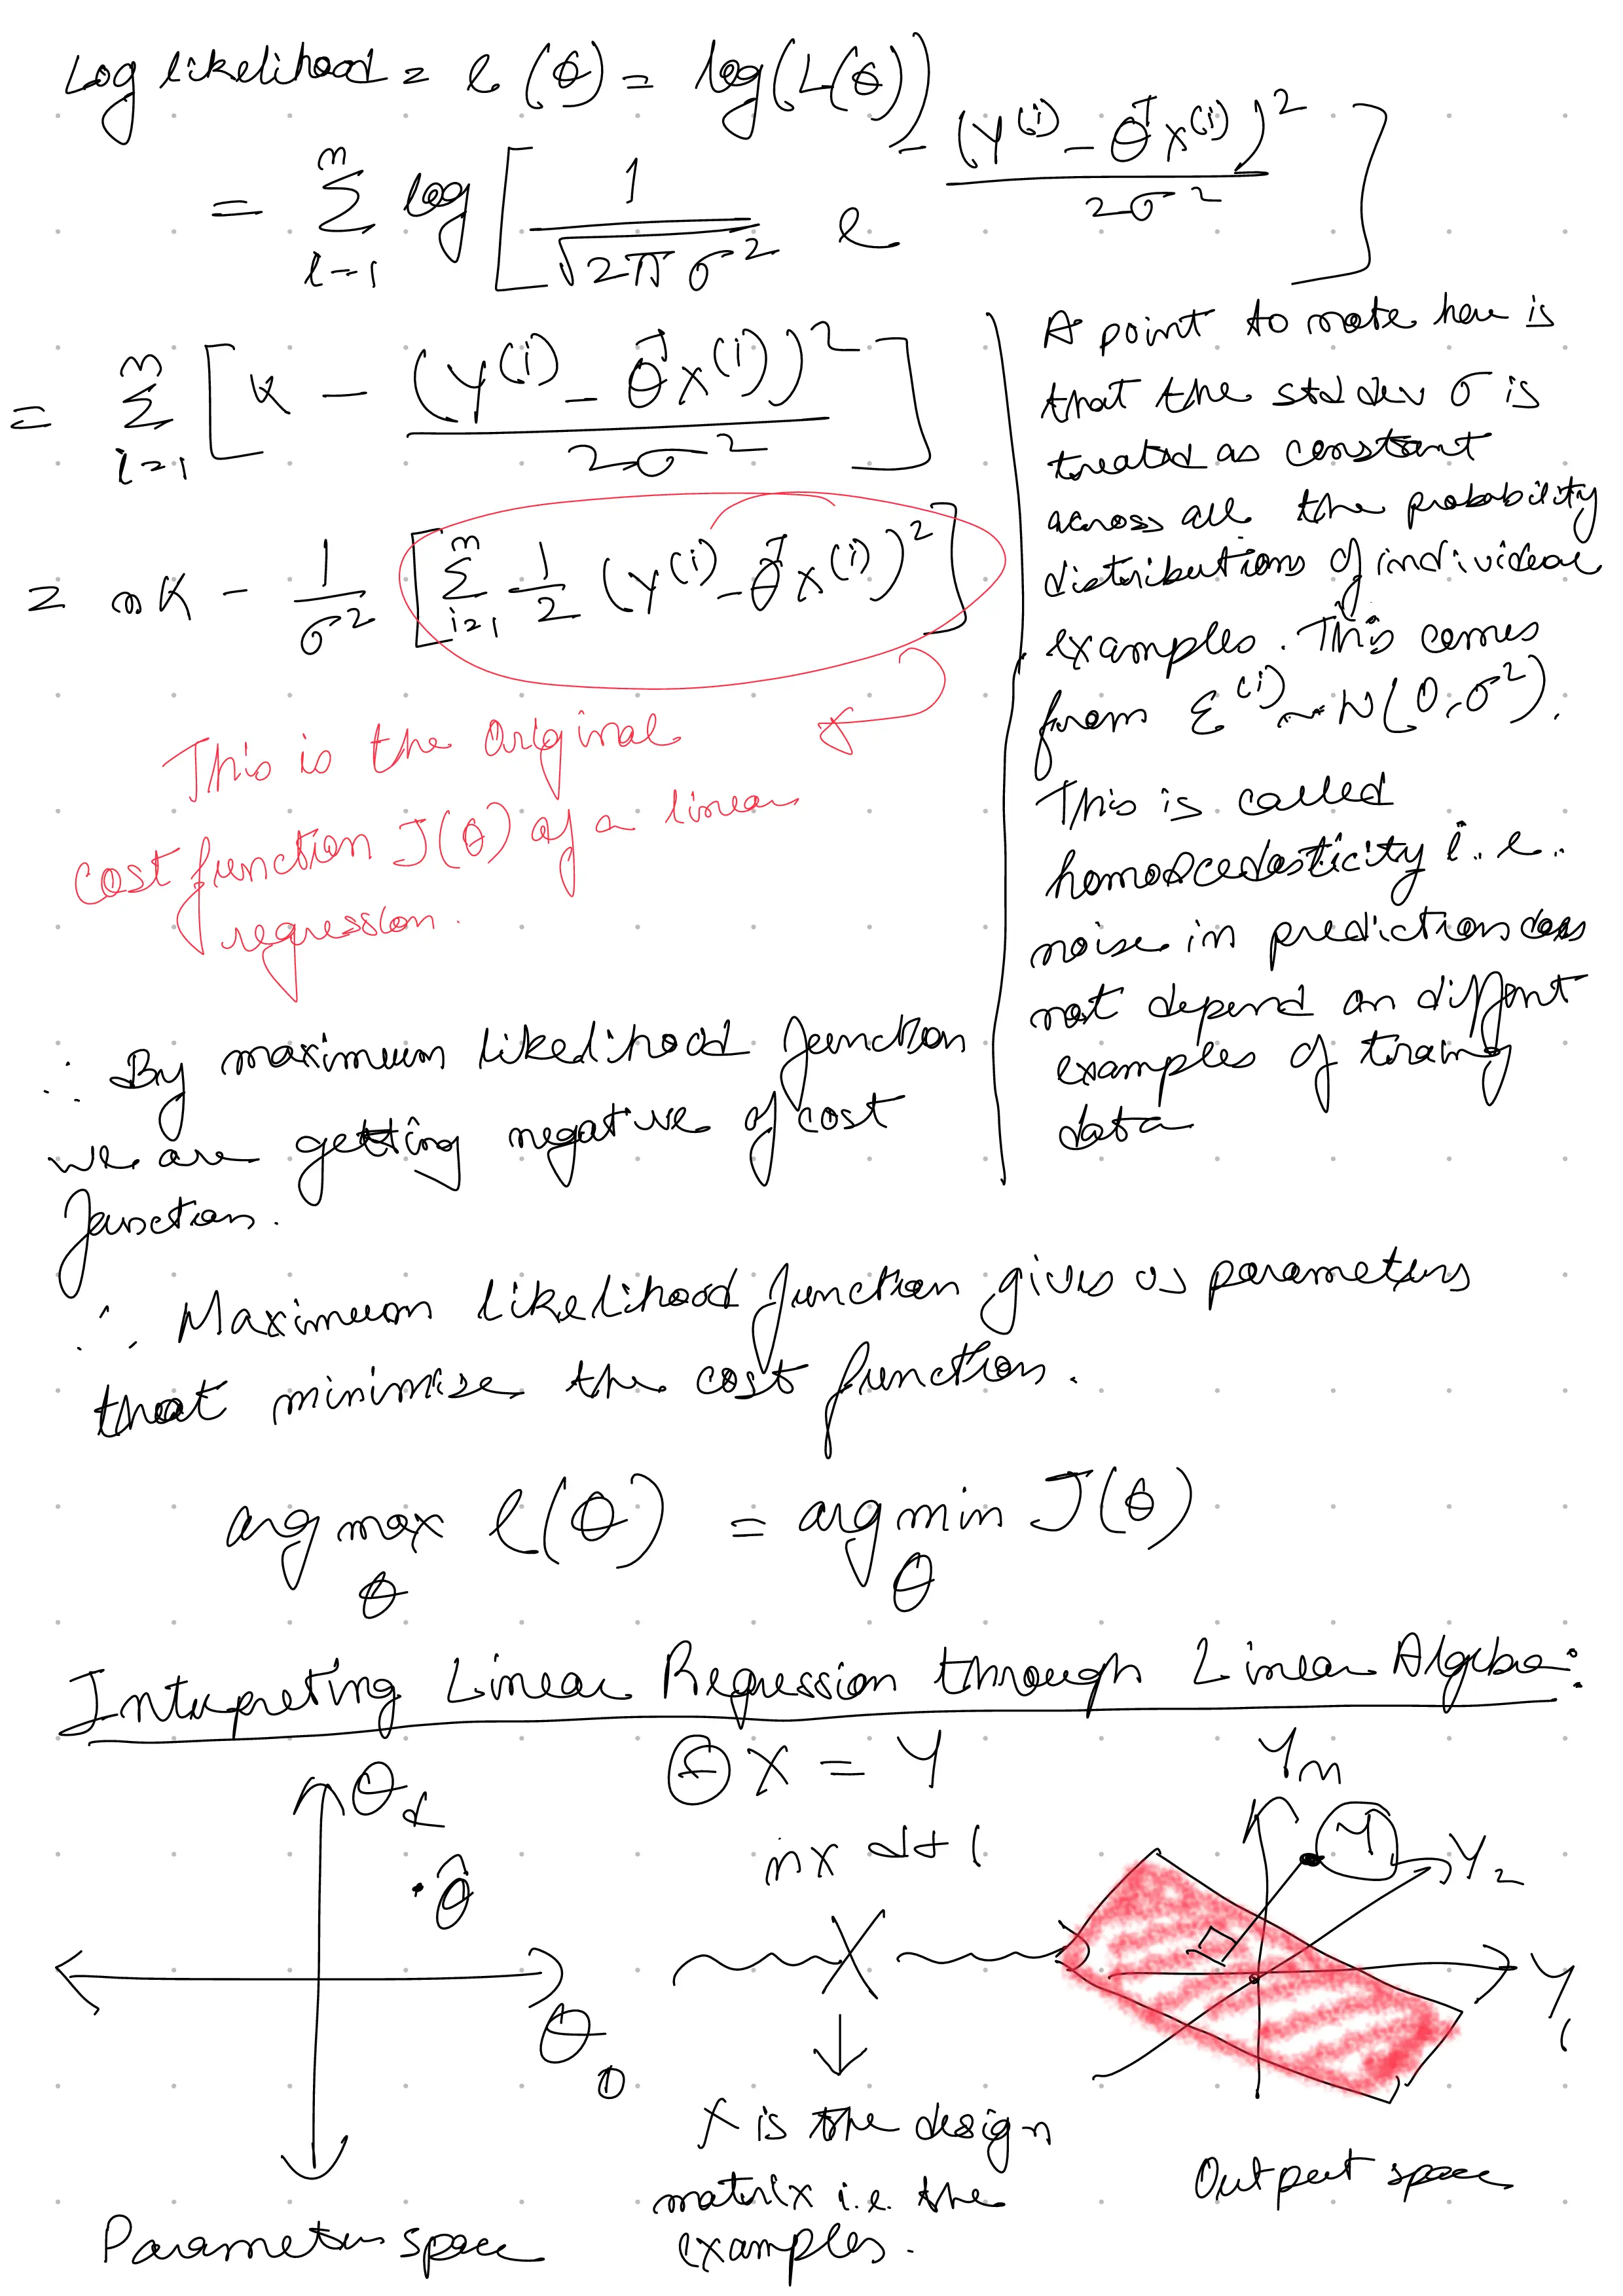 Log likelihood = l (θ) = log(L(θ))
= Σ_{i=1}^{n} log [ 1/√(2πσ²) e^{-(y^{(i)} - θ^T x^{(i)})² / 2σ²} ]
= Σ_{i=1}^{n} [ K - (y^{(i)} - θ^T x^{(i)})² / 2σ² ]
= nK - 1/σ² [ Σ_{i=1}^{n} 1/2 (y^{(i)} - θ^T x^{(i)})² ]
This is the original
cost function J(θ) of a linear
regression.
A point to note here is
that the std dev σ is
treated as constant
across all the probability
distributions of individual
examples. This comes
from ε^{(i)} ~ N(0, σ²).
This is called
homoscedasticity i.e.
noise in prediction does
not depend on diffent
examples of traing
data
∴ By maximum likelihood function
we are getting negative of cost
function.
∴ Maximum likelihood function gives us parameters
that minimise the cost function.
arg max l(θ) = arg min J(θ)
θ θ
Interpreting Linear Regression through Linear Algebra:
Θ X = Y
n x d+1
θ_d
θ̂
θ_0
Parameter space
X
X is the design
matrix i.e. the
examples.
Y_n
Y
Y_2
Y_1
Output space